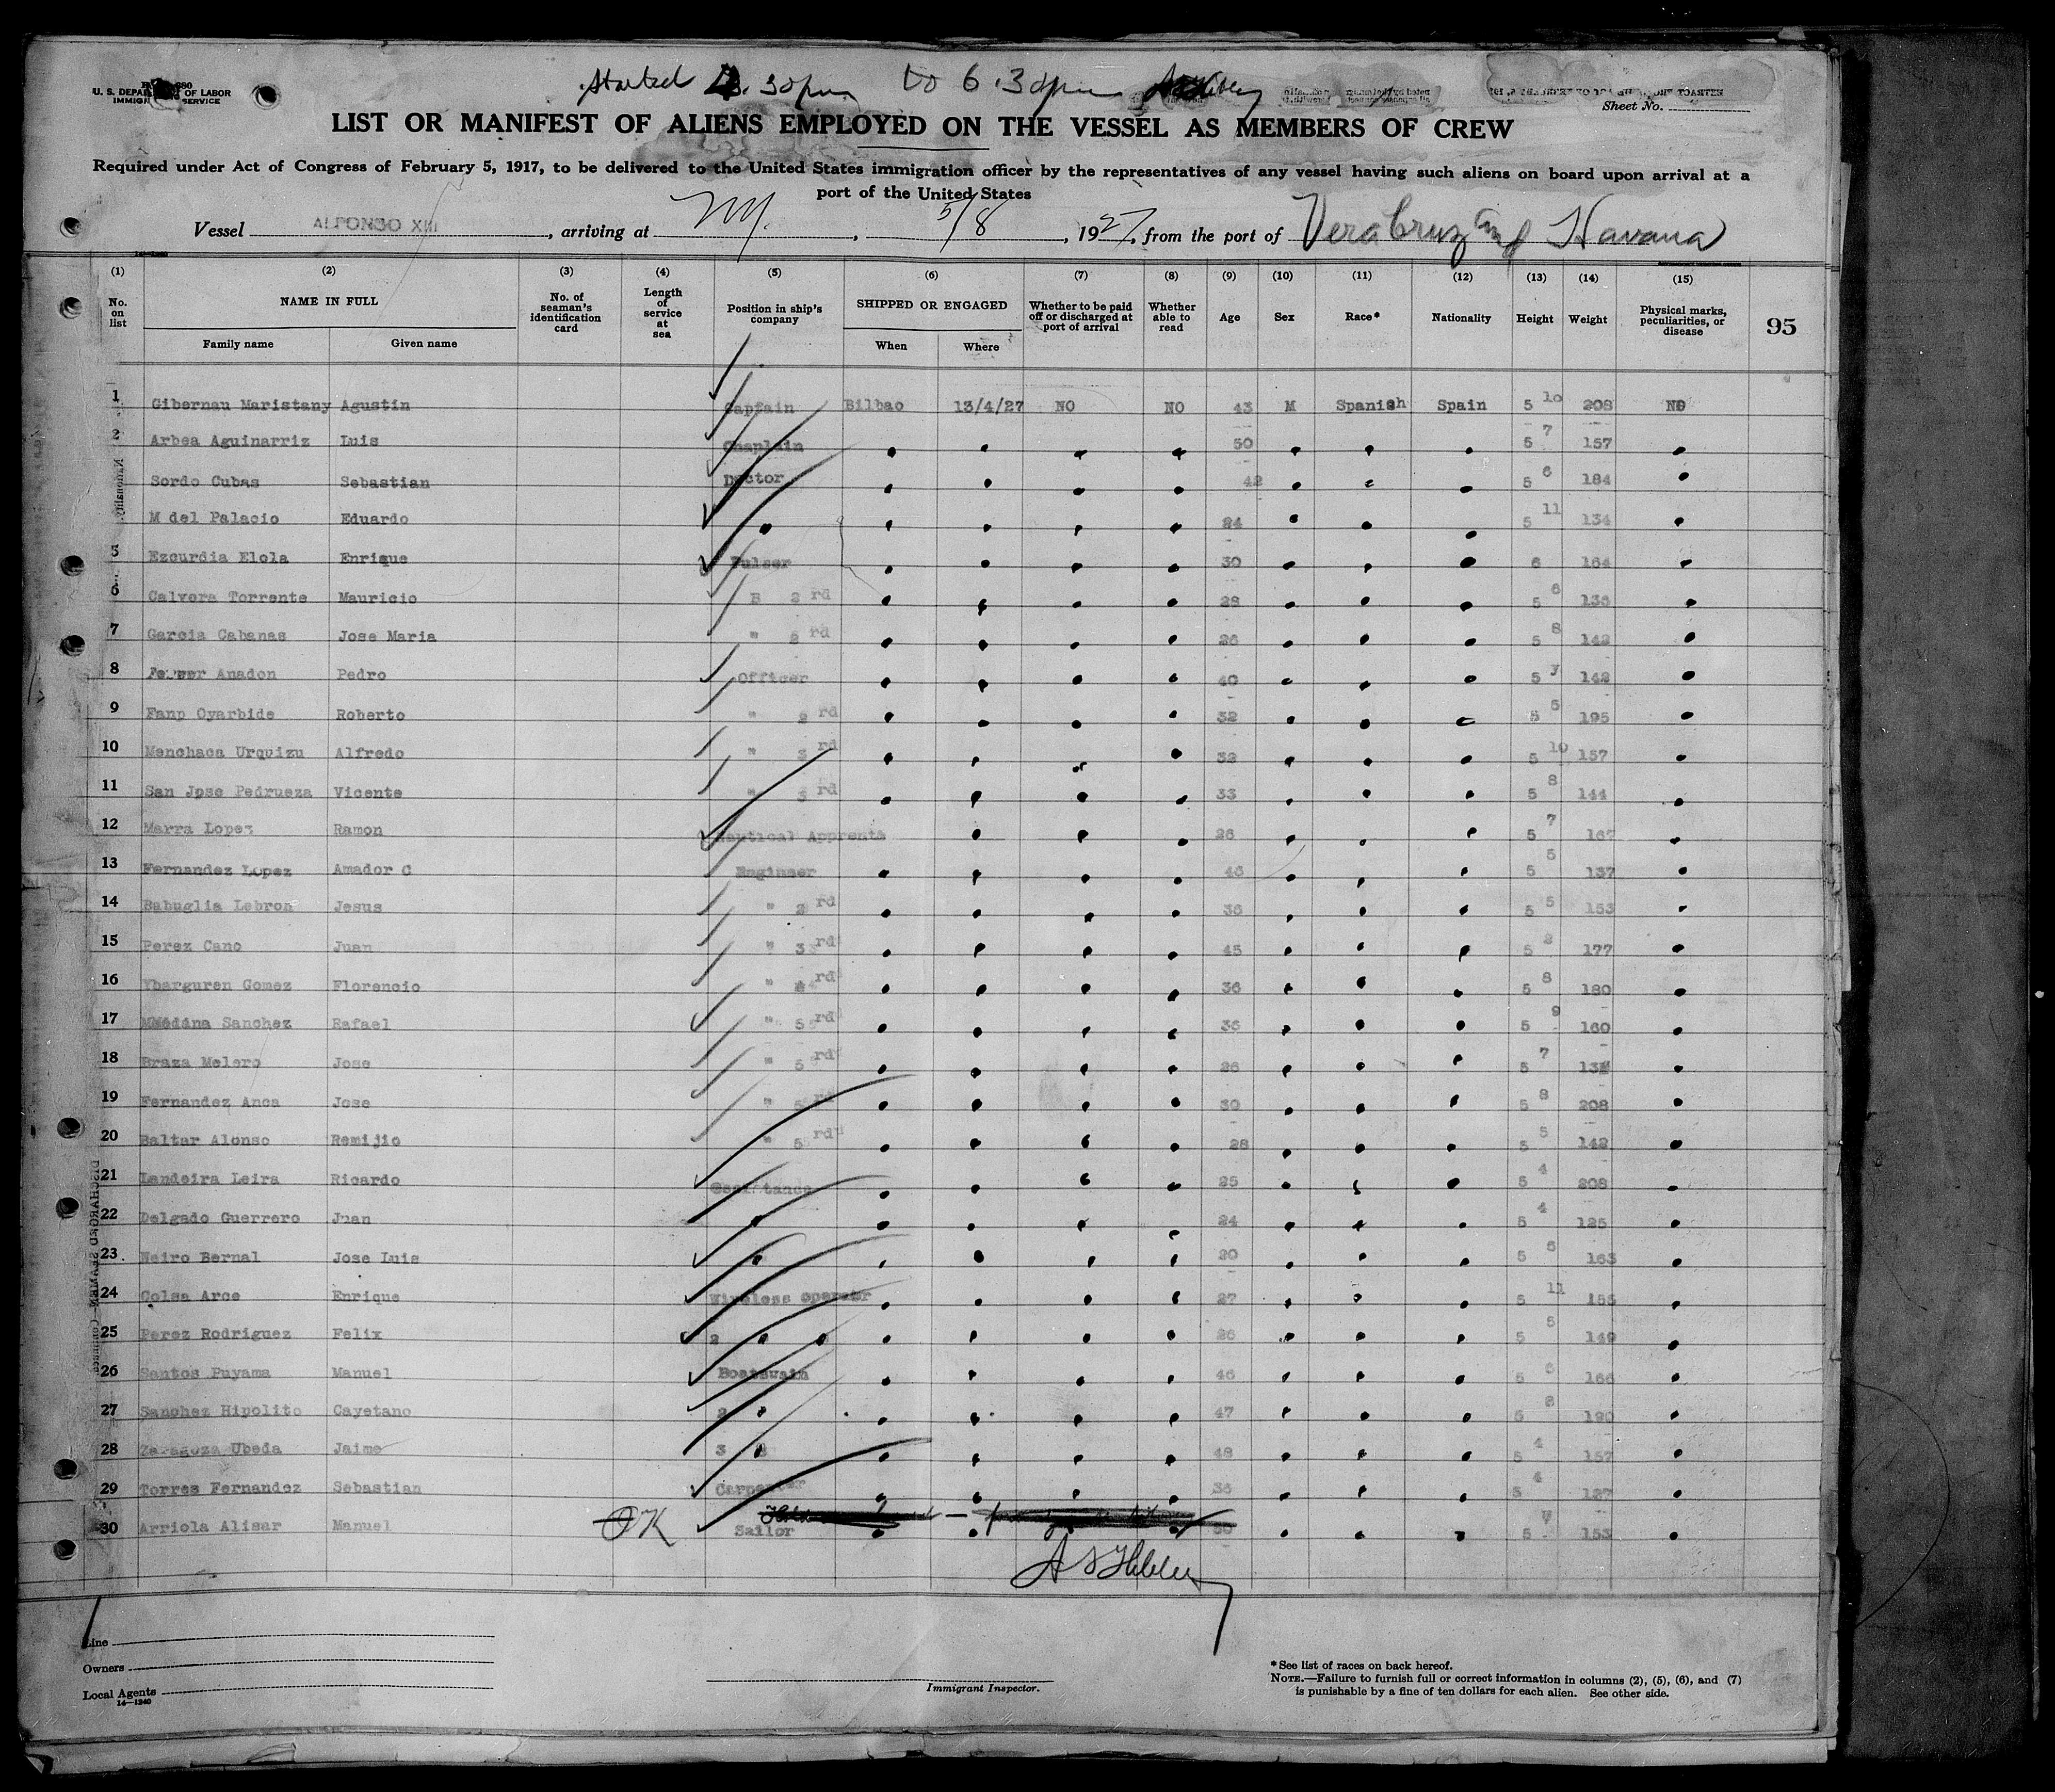 Started 3.30pm to 6.30pm
U. S. DEPARTMENT OF LABOR
IMMIGRATION SERVICE
Sheet No.
LIST OR MANIFEST OF ALIENS EMPLOYED ON THE VESSEL AS MEMBERS OF CREW
Required under Act of Congress of February 5, 1917, to be delivered to the United States immigration officer by the representatives of any vessel having such aliens on board upon arrival at a
port of the United States
Vessel ALFONSO XIII, arriving at NY., 5/8, 1927, from the port of Vera Cruz and Havana
(1) (2) (3) (4) (5) (6) (7) (8) (9) (10) (11) (12) (13) (14) (15)
No. on list NAME IN FULL No. of seaman's identification card Length of service at sea Position in ship's company SHIPPED OR ENGAGED Whether to be paid off or discharged at port of arrival Whether able to read Age Sex Race* Nationality Height Weight Physical marks, peculiarities, or disease 95
Family name Given name When Where
1 Gibernau Maristany Agustin Captain Bilbao 13/4/27 NO NO 43 M Spanish Spain 5 10 208 NO
2 Arbea Aguinarriz Luis Chaplain 50 5 7 157
Sordo Cubas Sebastian Doctor 42 5 6 184
M del Palacio Eduardo 24 5 11 134
5 Ezcurdia Elola Enrique Pulser 30 6 164
6 Calvera Torrente Mauricio 28 5 6
7 Garcia Cabanas Jose Maria 26 5 8 142
8 Anadon Pedro Officer 40 5 142
9 Fanp Oyarbide Roberto " 2 rd 32 5 5 195
10 Menchaca Urquizu Alfredo " 3 rd 32 5 10 157
11 San Jose Pedrueza Vicente " 3 rd 33 5 8 144
12 Marra Lopez Ramon Nautical Apprenta 26 5 7 167
13 Fernandez Lopez Amador C Engineer 5 5 137
14 Babuglia Lebron Jesus " 2 rd 36 5 5 153
15 Perez Cano Juan " 3 rd 45 5 2 177
16 Ybarguren Gomez Florencio " 4 rd 36 5 8 180
17 Medina Sanchez Rafael " 5 rd 36 5 9 160
18 Braza Melero Jose " 5 rd 26 5 7
19 Fernandez Anca Jose " 5 rd 30 5 8 208
20 Baltar Alonso Remijio " 5 rd 28 5 5 142
21 Landeira Leira Ricardo 25 5 4 208
22 Delgado Guerrero Juan 24 5 4 125
23 Neiro Bernal Jose Luis 20 5 5 163
24 Colsa Arce Enrique Wireless operator 27 5 11 155
25 Perez Rodriguez Felix 2 26 5 5 149
26 Santos Puyama Manuel Boatswain 46 5 166
27 Sanchez Hipolito Cayetano 2 47 5 190
28 Zaragoza Ubeda Jaime 3 48 5 4 157
29 Torres Fernandez Sebastian Carpenter 36 5 4 127
30 Arriola Alisar Manuel OK Sailor 5 153
Line
Owners
Local Agents
14—1240
Immigrant Inspector.
*See list of races on back hereof.
NOTE.—Failure to furnish full or correct information in columns (2), (5), (6), and (7)
is punishable by a fine of ten dollars for each alien. See other side.